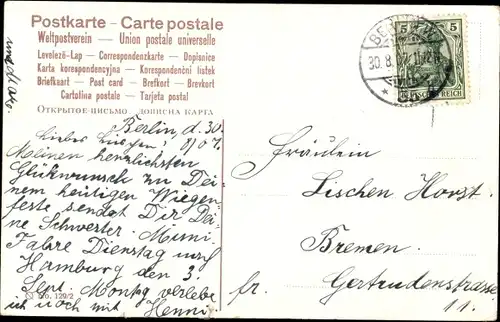 Postkarte - Carte postale
Weltpostverein — Union postale universelle
Levelező-Lap — Correspondenzkarte — Dopisnice
Karta korespondencyjna — Korespondenční lístek
Briefkaart — Post card — Brefkort — Brevkort
Cartolina postale — Tarjeta postal
Открытое письмо Дописна карта
5 5
DEUTSCHES REICH
30.8.
Berlin, d. 30.
8/07.
Lieber
Meinen herzlichsten
Glückwunsch zu Dei-
nem heutigen Wiegen-
feste sendet Dir Dei-
ne Schwester. Mimi.
Fahre Dienstag nach
Hamburg den 3.
Sept. Montag verlebe
ich noch mit Henni
und
No. 129/2
Fräulein
Lischen Horst.
Bremen.
fr. Gertrudenstrasse
11.